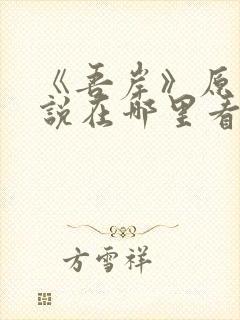 《吾岸》原
說在哪里看
方雪祥